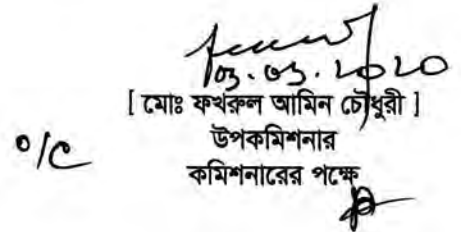 03.03.2020
[ মোঃ ফখরুল আমিন চৌধুরী ]
উপকমিশনার
o/c
কমিশনারের পক্ষে